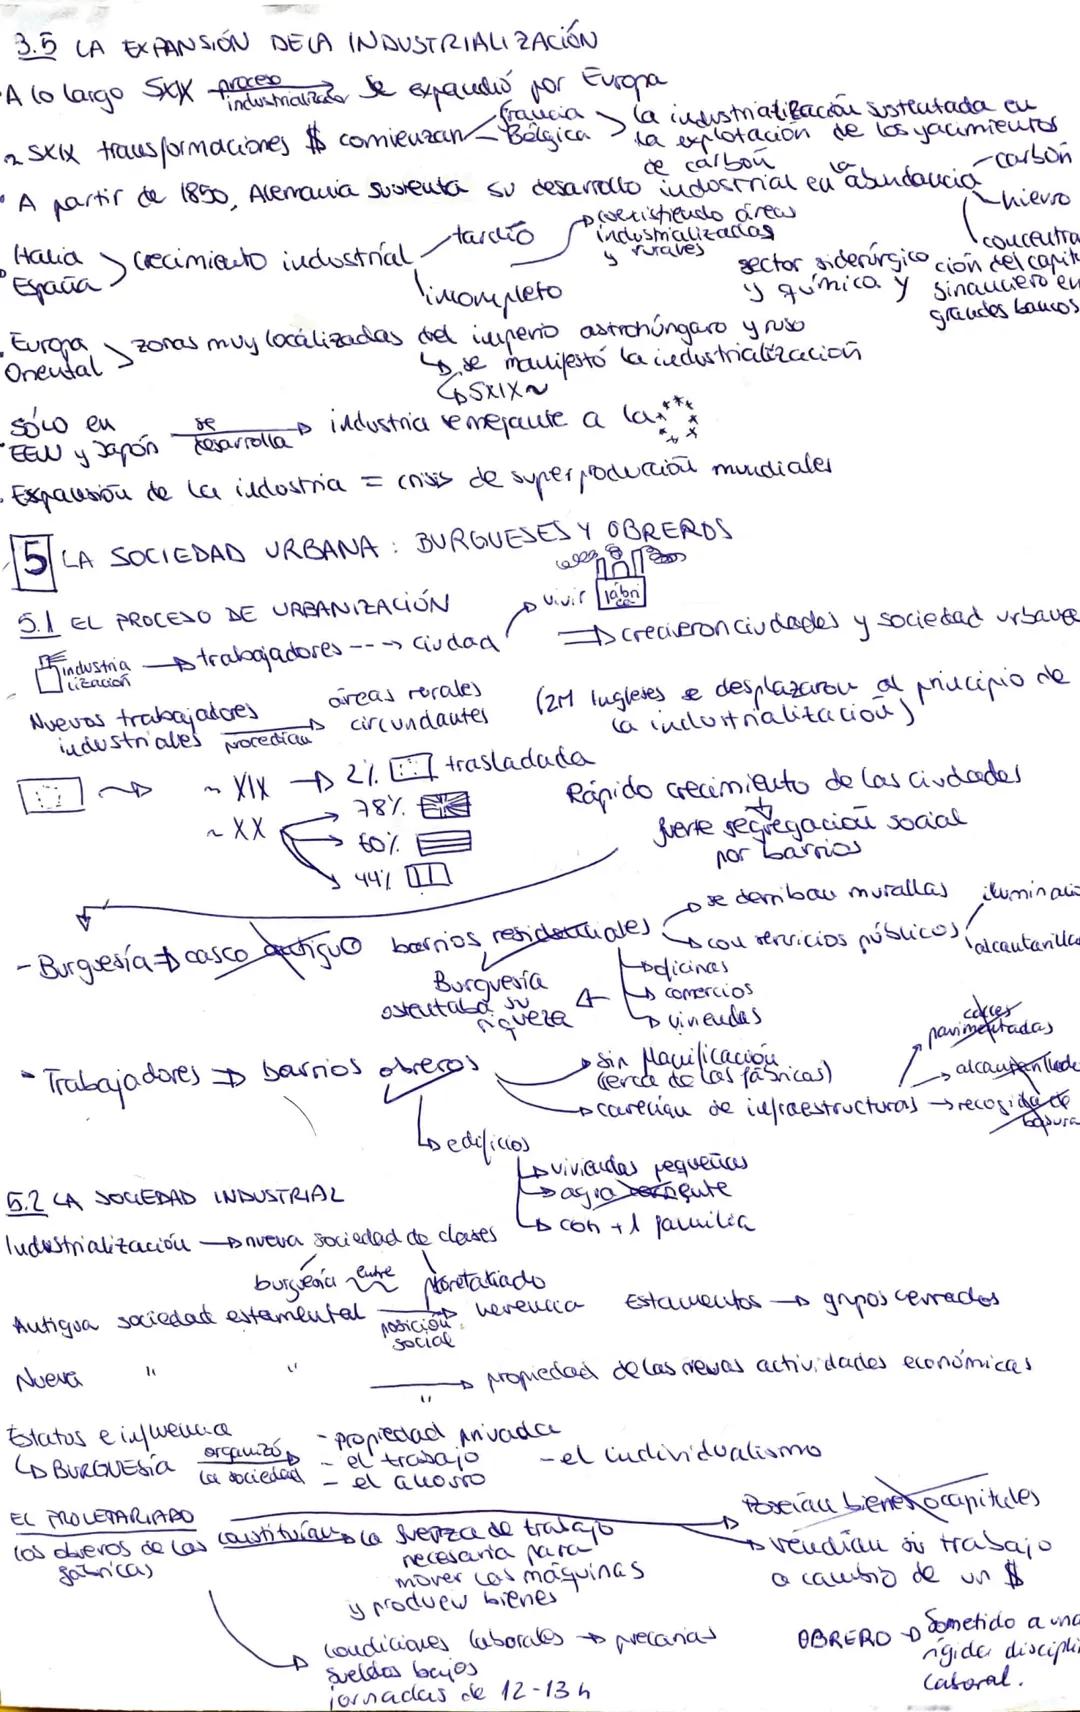 3.5 LA EXPANSIÓN DE LA INDUSTRIALIZACIÓN
A lo largo SXIX proceso industrializador se expandió por Europa
~ SXIX transformaciones $ comienzan Francia Bélgica la industrialización sustentada en
la explotación de los yacimientos
de carbón
• A partir de 1850, Alemania sustenta su desarrollo industrial en la abundancia
carbón
hierro
concentra
ción del capital
financiero en
grandes bancos
sector siderúrgico
y química y
Italia
España
crecimiento industrial
tardío
incompleto
coexistiendo áreas
industrializadas
y rurales
Europa
Oriental
zonas muy localizadas del imperio astrohúngaro y ruso
se manifestó la industrialización
SXIX ~
sólo en
EEUU y Japón
se
desarrolla
industria semejante a la
Expansión de la industria = crisis de superproducción mundiales
5 LA SOCIEDAD URBANA: BURGUESES Y OBREROS
5.1 EL PROCESO DE URBANIZACIÓN
industria
lización
trabajadores ---> ciudad
vivir
fábri
ca
crecieron ciudades y sociedad urbana
Nuevos trabajadores
industriales
procedían
áreas rurales
circundantes
(2M Ingleses se desplazaron al principio de
la industrialización)
~ XIX 2% trasladada
~ XX
78%
60%
44%
Rápido crecimiento de las ciudades
fuerte segregación social
por barrios
- Burguesía casco antiguo barrios residenciales
se derriban murallas
con servicios públicos
iluminació
alcantarilla
oficinas
comercios
viviendas
Burguesía
ostentaba su
riqueza
- Trabajadores barrios obreros
sin planificación
(cerca de las fábricas)
carecían de infraestructuras
calles
pavimentadas
recogida de
basura
edificios
viviendas pequeñas
agua corriente
con +1 familia
5.2 LA SOCIEDAD INDUSTRIAL
Industrialización nueva sociedad de clases
burguesía entre proletariado
Antigua sociedad estamental
posición
social
herencia Estamentos grupos cerrados
Nueva " "
"
propiedad de las nuevas actividades económicas
Estatus e influencia
BURGUESÍA
organizó
la sociedad
- propiedad privada
- el trabajo
- el ahorro
- el individualismo
EL PROLETARIADO
los obreros de las
fábricas
constituían
la fuerza de trabajo
necesaria para
mover las máquinas
y producir bienes
Poseían bienes o capitales
vendían su trabajo
a cambio de un $
condiciones laborales precarias
sueldos bajos
jornadas de 12-13 h
OBRERO
Sometido a una
rígida discipli
laboral.